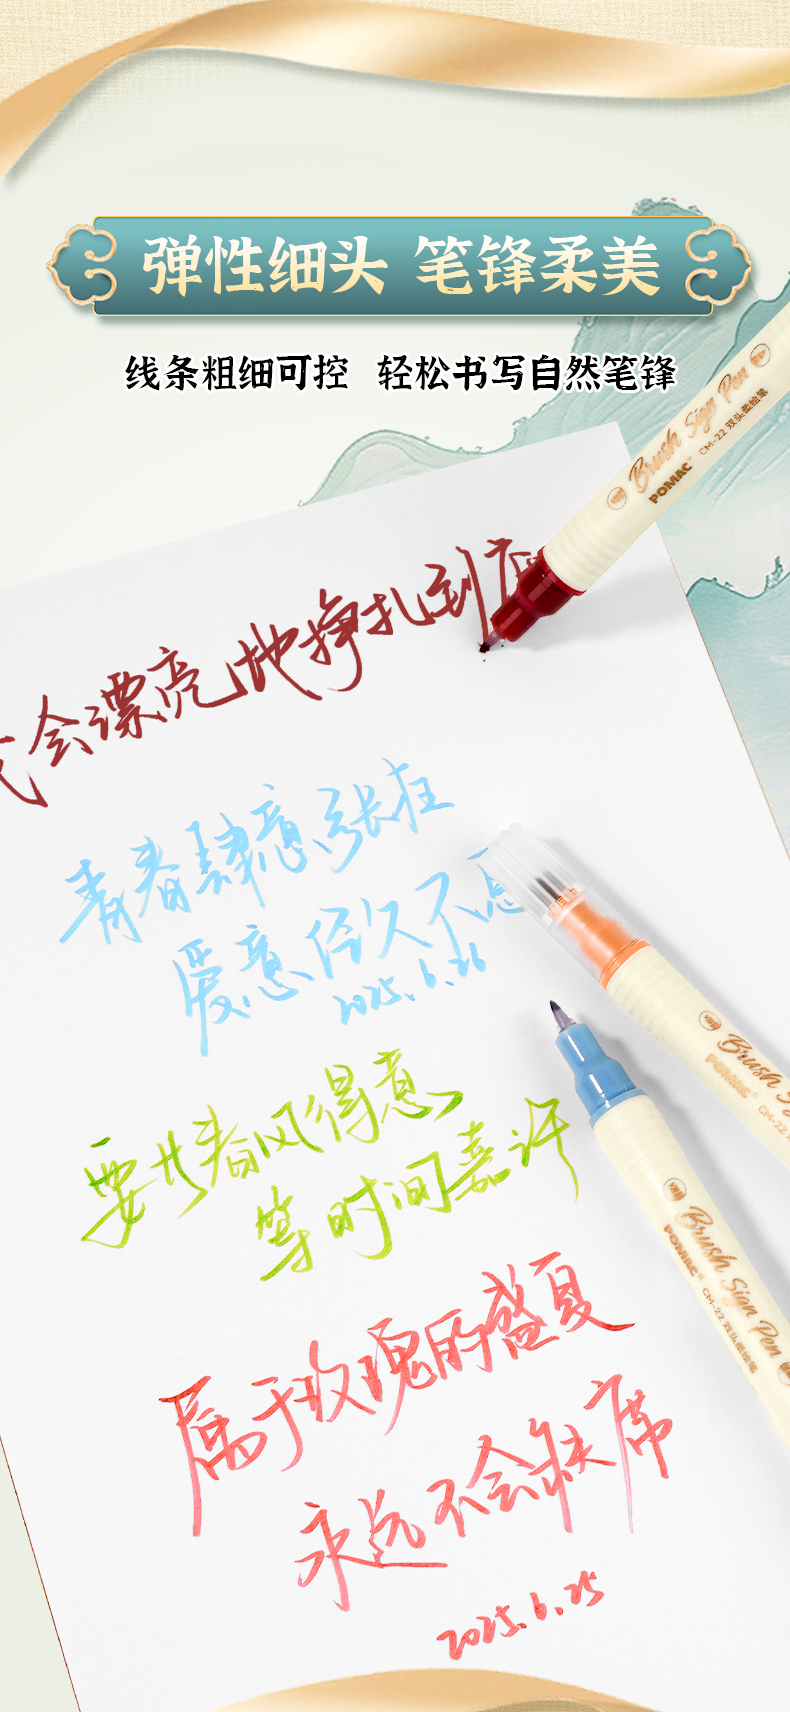 弹性细头 笔锋柔美
线条粗细可控 轻松书写自然笔锋
Brush Sign Pen
POMAC
CM-22 双头柔绘笔
会漂亮地挣扎到
青春肆意张狂
爱意经久不息
2025.6.26
Brush S
POMAC
CM-22
要共春风得意
等时间嘉许
Brush Sign Pen
POMAC
CM-22 双头柔绘笔
属于玫瑰的盛夏
永远不会缺席
2025.6.25